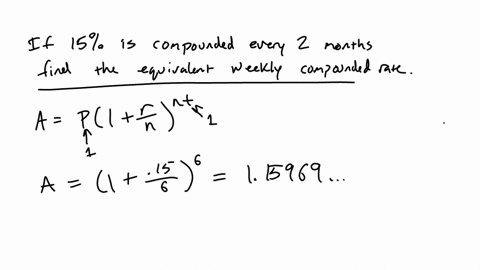 If 15% is compounded every 2 months
find the equivalent weekly compounded rate.
A = P(1 + r/n)^nt 1
↑
1
A = (1 + .15/6)^6 = 1.15969...